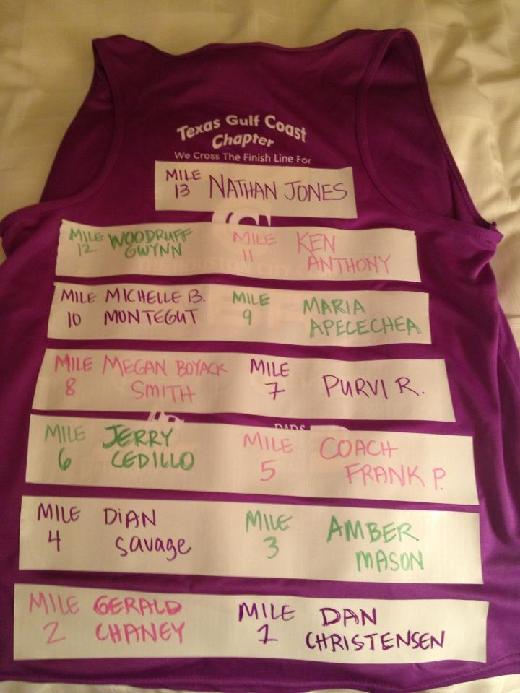 Texas Gulf Coast
Chapter
We Cross The Finish Line For
MILE 13 NATHAN JONES
MILE 12 WOODRUFF GWYNN
MILE 11 KEN ANTHONY
MILE 10 MICHELLE B. MONTEGUT
MILE 9 MARIA APECECHEA
MILE 8 MEGAN BOYACK SMITH
MILE 7 PURVI R.
MILE 6 JERRY CEDILLO
MILE 5 COACH FRANK P.
MILE 4 DIAN Savage
MILE 3 AMBER MASON
MILE 2 GERALD CHANEY
MILE 1 DAN CHRISTENSEN